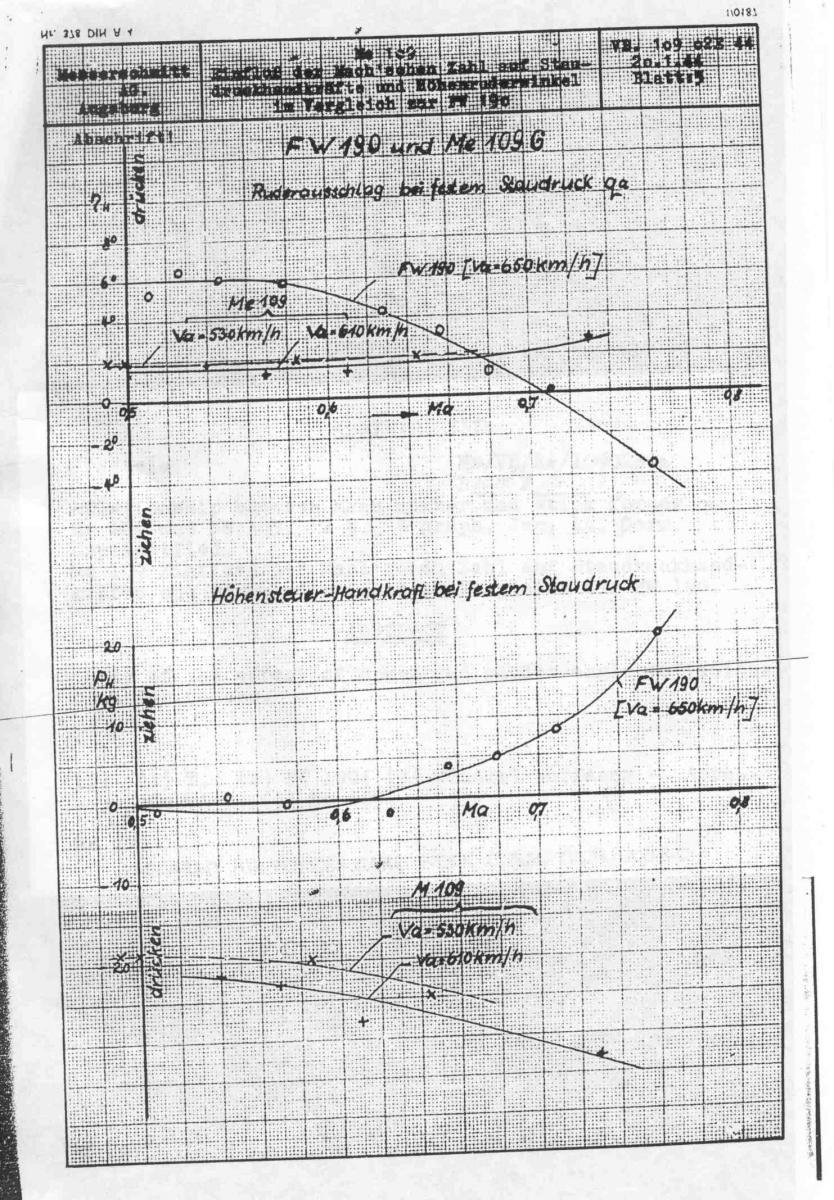 110187
Me 109
Messerschmitt
AG.
Augsburg
Einfluß der Mach'schen Zahl auf Stau-
druckhandkräfte und Höhenruderwinkel
im Vergleich zur FW 190
VB. 109 02E 44
20.1.44
Blatt:5
Abschrift!
FW 190 und Me 109 G
Ruderausschlag bei festem Staudruck qa
ηH
drücken
8°
6°
4°
0
-2°
-4°
ziehen
FW 190 [Va=650km/h]
Me 109
Va=530km/h
Va=610km/h
0,5
0,6
Ma
0,7
0,8
Höhensteuer-Handkraft bei festem Staudruck
20
PH
kg
10
0
-10
-20
ziehen
drücken
FW 190
[Va = 650km/h]
0,5
0,6
Ma
0,7
0,8
M 109
Va=530Km/h
Va=610km/h